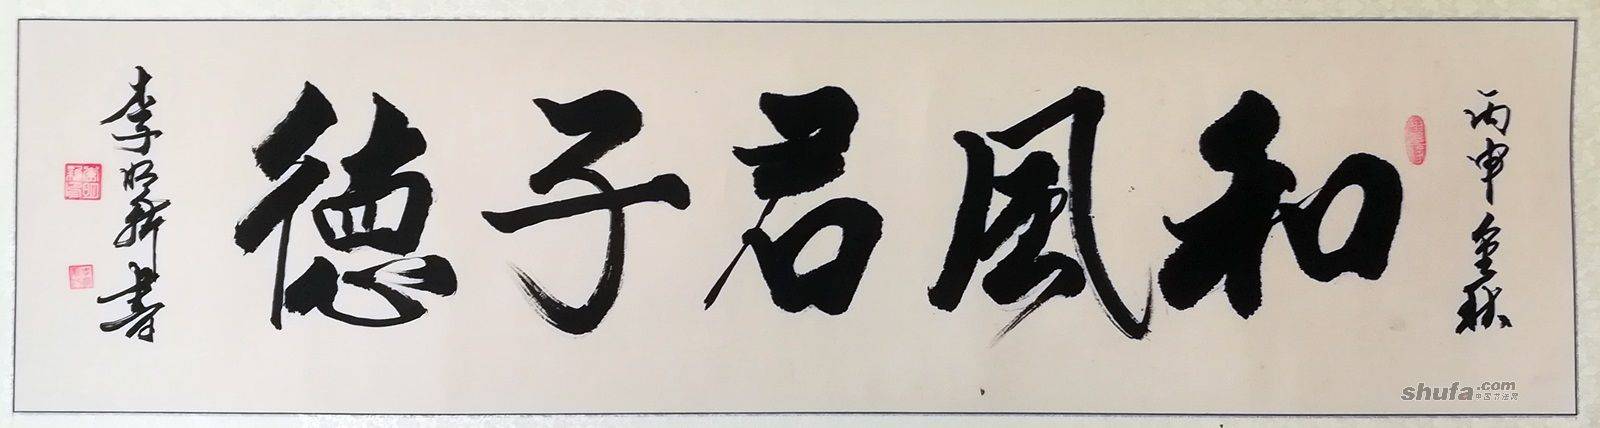 丙申金秋
和风君子德
李明科書
shufa.com
中国书法网